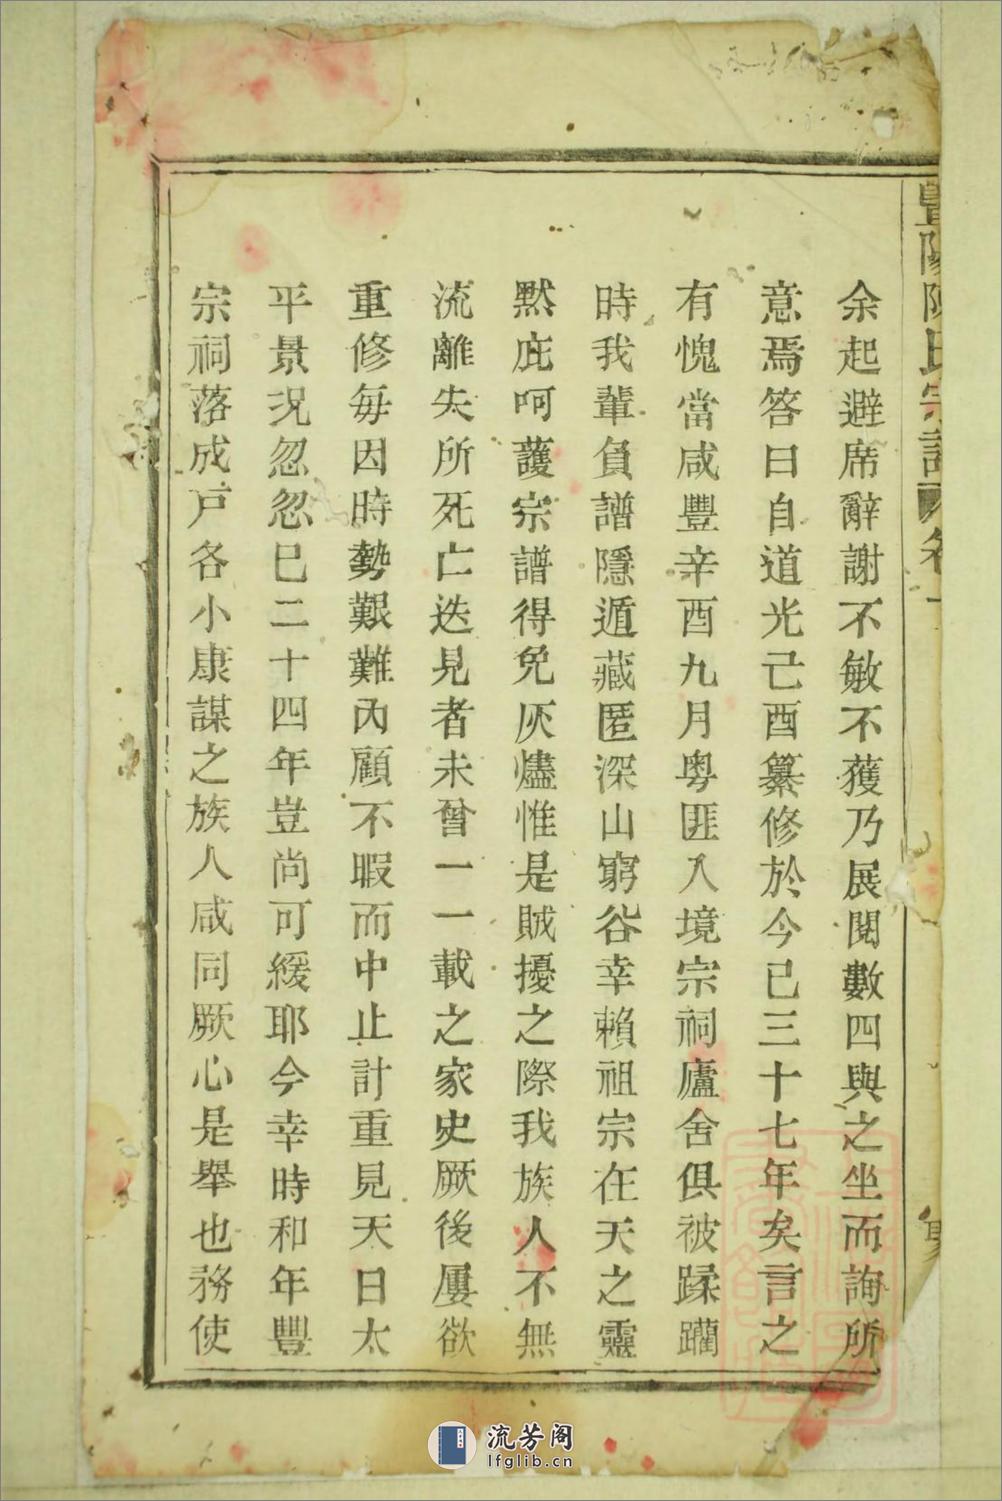 陳氏宗譜 卷一
余起避席辭謝不敏不獲乃展閱數四與之坐而詢所
意焉答曰自道光己酉纂修於今已三十七年矣言之
有愧當咸豐辛酉九月粵匪入境宗祠廬舍俱被蹂躪
時我輩負譜隱遁藏匿深山窮谷幸賴祖宗在天之靈
默庇呵護宗譜得免灰燼惟是賊擾之際我族人不無
流離失所死亡迭見者未曾一一載之家史厥後屢欲
重修毎因時勢艱難內顧不暇而中止計重見天日太
平景況忽忽已二十四年豈尚可緩耶今幸時和年豐
宗祠落成戸各小康謀之族人咸同厥心是舉也務使
流芳阁
lfglib.cn